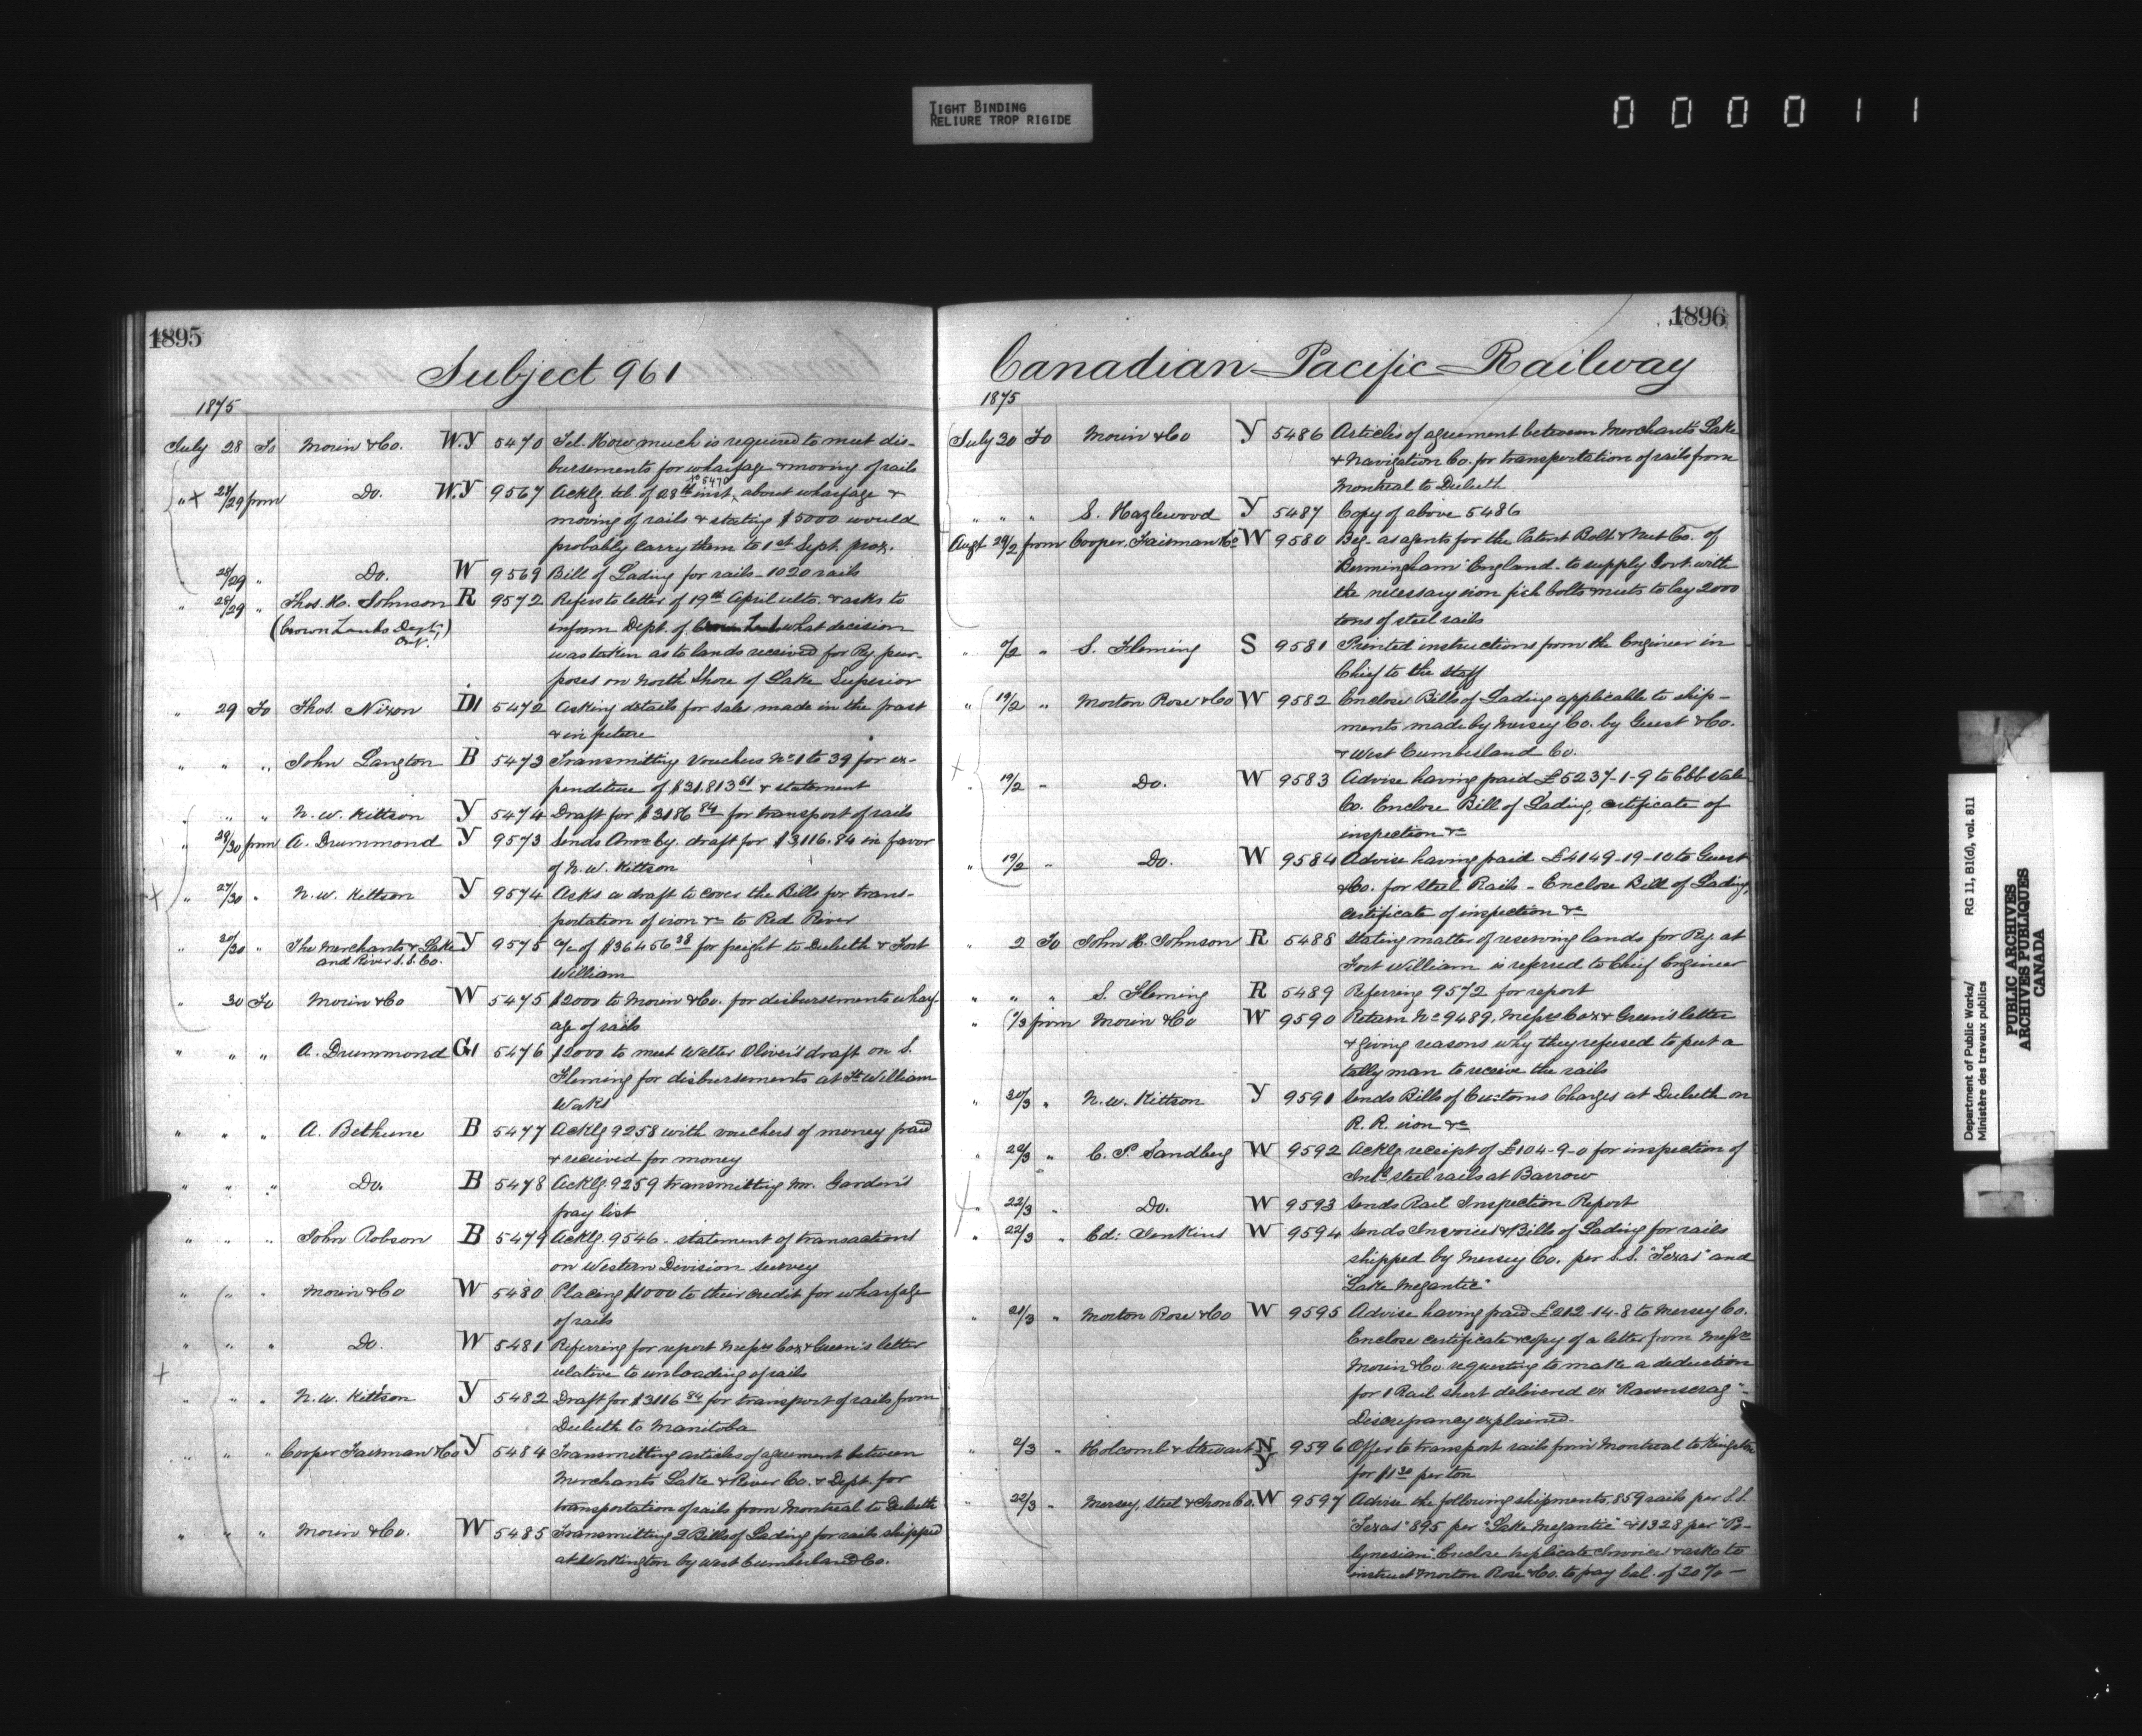 TIGHT BINDING
RELIURE TROP RIGIDE
000011
1895
Subject 961
1875
July 28 To Morin & Co. W.Y 5470 Tel. How much is required to meet dis-
bursements for wharfage & moving of rails
" + 28/29 from Do. W.Y 9567 Acklg tel. of 28th inst, to 5470 about wharfage &
moving of rails & stating $5000 would
probably carry them to 1st Sept. prox.
28/29 " Do. W 9569 Bill of Lading for rails - 1020 rails
" 28/29 " Thos. H. Johnson R 9572 Refers to letter of 19th April ulto. & asks to
(Crown Lands Dept. Ont.) inform Dept. of what decision
was taken as to lands received for Ry. pur-
poses on North Shore of Lake Superior
" 29 To Thos. Nixon D1 5472 Asking details for sales made in the past
& in future
" " " John Langton B 5473 Transmitting Vouchers No 1 to 39 for ex-
penditure of $31.813 61 & statement
" " N. W. Kittson Y 5474 Draft for $3186 84 for transport of rails
" 29/30 from A. Drummond Y 9573 Sends draft for $3,116.84 in favor
of N. W. Kittson
+ " 27/30 " N. W. Kittson Y 9574 Asks a draft to cover the Bills for trans-
portation of iron &c to Red River
" 20/30 " The Merchants & Lake Y 9575 a/c of $36456 38 for freight to Duluth & Fort
and River S.S. Co. William
" 30 To Morin & Co W 5475 $2000 to Morin & Co. for disbursements wharf-
age of rails
" " " A. Drummond G1 5476 $2000 to meet Walter Oliver's draft on S.
Fleming for disbursements at Ft. William
Works
" " " A. Bethune B 5477 Acklg 9258 with vouchers of money paid
& received for money
" " " Do. B 5478 Acklg. 9259 transmitting Mr. Gordon's
pay list
" " " John Robson B 5479 Acklg. 9546 - statement of transactions
on Western Division survey
" " " Morin & Co W 5480 Placing $1000 to their credit for wharfage
of rails
" " " Do. W 5481 Referring for report Messrs Cox & Green's letter
relative to unloading of rails
+ " " " N. W. Kittson Y 5482 Draft for $3116 84 for transport of rails from
Duluth to Manitoba
" " " Cooper Fairman & Co Y 5484 Transmitting articles of agreement between
Merchants Lake & River Co. & Dept. for
transportation of rails from Montreal to Duluth
" " " Morin & Co. W 5485 Transmitting 2 Bills of Lading for rails shipped
at Workington by West Cumberland Co.
1896
Canadian Pacific Railway
1875
July 30 To Morin & Co Y 5486 Articles of agreement between Merchants Lake
& Navigation Co. for transportation of rails from
Montreal to Duluth
" " " S. Hazlewood Y 5487 Copy of above 5486
Augt 29/2 from Cooper, Fairman & Co W 9580 Beg - as agents for the Patent Bolt & Nut Co. of
Birmingham England - to supply Govt. with
the necessary iron fish bolts & nuts to lay 2000
tons of steel rails
" 0/2 " S. Fleming S 9581 Printed instructions from the Engineer in
Chief to the staff
" 19/2 " Morton Rose & Co W 9582 Enclose Bills of Lading applicable to ship-
ments made by Mersey Co. by Guest & Co.
& West Cumberland Co.
+ " 19/2 " Do. W 9583 Advise having paid £5237-1-9 to Ebb Vale
Co. Enclose Bill of Lading, certificate of
inspection &c
" 19/2 " Do. W 9584 Advise having paid £4149-19-10 to Guest
& Co. for Steel Rails - Enclose Bill of Lading,
certificate of inspection &c
" 2 To John H. Johnson R 5488 Stating matter of reserving lands for Ry. at
Fort William is referred to Chief Engineer
" " " S. Fleming R 5489 Referring 9572 for report
" 0/3 from Morin & Co W 9590 Return No 9489, Messrs Cox & Green's letter
& giving reasons why they refused to put a
tally man to receive the rails
" 30/3 " N. W. Kittson Y 9591 Sends Bills of Customs Charges at Duluth on
R. R. iron &c
" 20/3 " C. P. Sandberg W 9592 Acklg receipt of £104-9-0 for inspection of
steel rails at Barrow
+ " 22/3 " Do. W 9593 Sends Rail Inspection Report
" 22/3 " Ed: Jenkins W 9594 Sends Invoices & Bills of Lading for rails
shipped by Mersey Co. per S.S. "Texas" and
"Lake Megantic"
" 21/3 " Morton Rose & Co W 9595 Advise having paid £212-14-8 to Mersey Co.
Enclose certificate & copy of a letter from Messrs
Morin & Co. requesting to make a deduction
for 1 Rail short delivered ex "Ravenscrag" -
Discrepancy explained.
" 2/3 " Holcomb & Stewart N Y 9596 Offer to transport rails from Montreal to Kingston
for $1 30 per ton
" 22/3 " Mersey, Steel & Iron Co. W 9597 Advise the following shipments, 859 rails per S.S.
"Texas" 895 per "Lake Megantic" & 1328 per "Po-
lynesian". Enclose triplicate Invoices & asks to
instruct Morton Rose & Co. to pay bal. of 20% -
Department of Public Works/
Ministère des travaux publics
RG 11, B1(d), vol. 811
PUBLIC ARCHIVES
ARCHIVES PUBLIQUES
CANADA